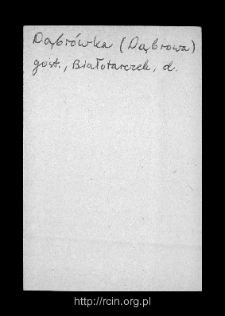 Dąbrówka (Dąbrowa)
gost., Białotarczek, d.
http://rcin.org.pl